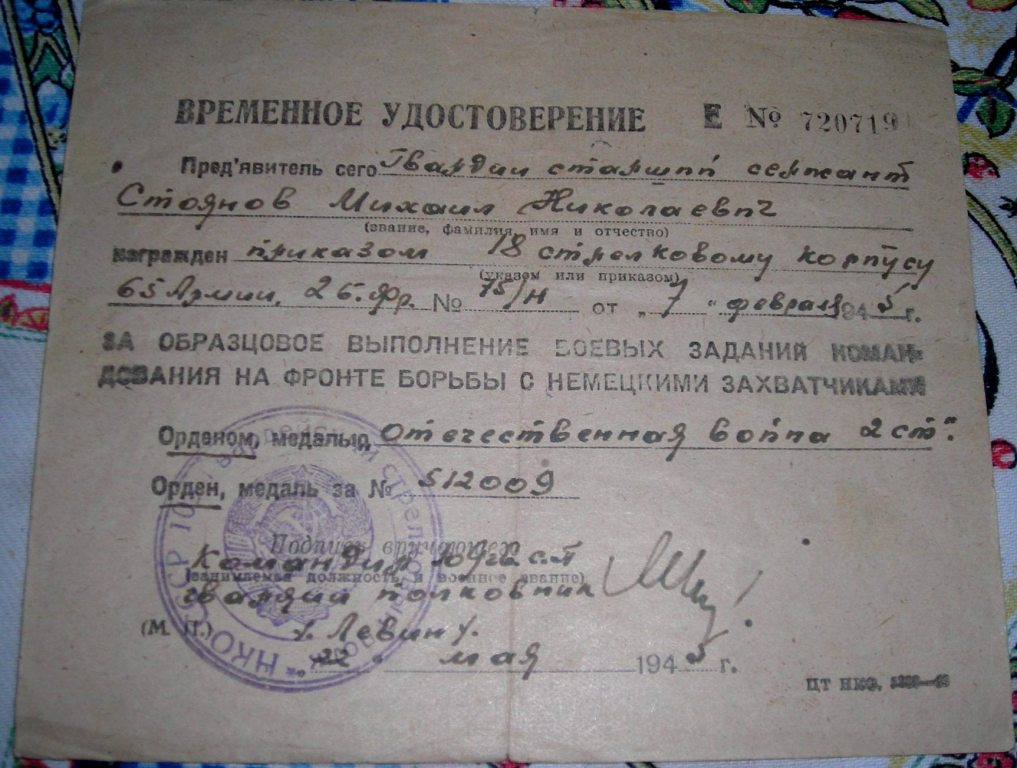 ВРЕМЕННОЕ УДОСТОВЕРЕНИЕ Е № 720719
Пред'явитель сего Гвардии старший сержант
Стоянов Михаил Николаевич
(звание, фамилия, имя и отчество)
награжден приказом 18 стрелковому корпусу
(указом или приказом)
65 Армии, 2б.Фр. № 75/н от „ 7 " февраля 1945 г.
ЗА ОБРАЗЦОВОЕ ВЫПОЛНЕНИЕ БОЕВЫХ ЗАДАНИЙ КОМАН-
ДОВАНИЯ НА ФРОНТЕ БОРЬБЫ С НЕМЕЦКИМИ ЗАХВАТЧИКАМИ
Орденом, медалью, Отечественная война 2 ст".
Орден, медаль за № 512009
Подпись вручающего
Командир
(занимаемая должность и военное звание)
гвардии полковник
(М. П.) Левин
„ 22 " мая 1945 г.
ЦТ НКО.
НКО СССР стрелковый